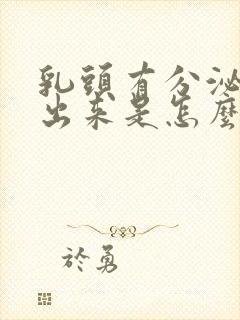 乳頭有分泌
出来是怎麼
於勇